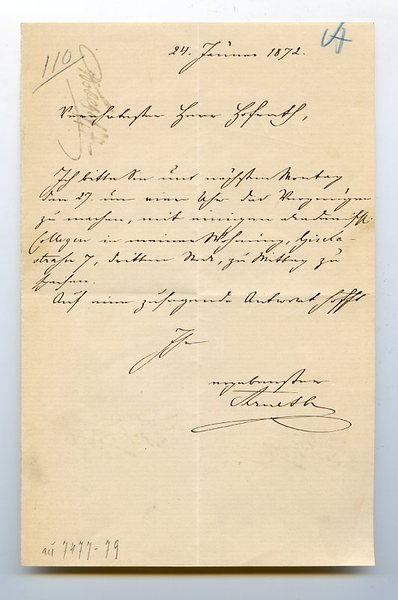 24. Jänner 1872.
110
Verehrtester Herr Hofrath,
Ich bitte Sie uns nächsten Montag
den 27. um vier Uhr das Vergnügen
zu machen, mit einigen akademisch.
Collegen in meiner Wohnung, Gisela-
straße 7, dritten Stock, zu Mittag zu
speisen.
Auf eine zusagende Antwort hofft
Ihr
ergebenster
Arneth
7477-79